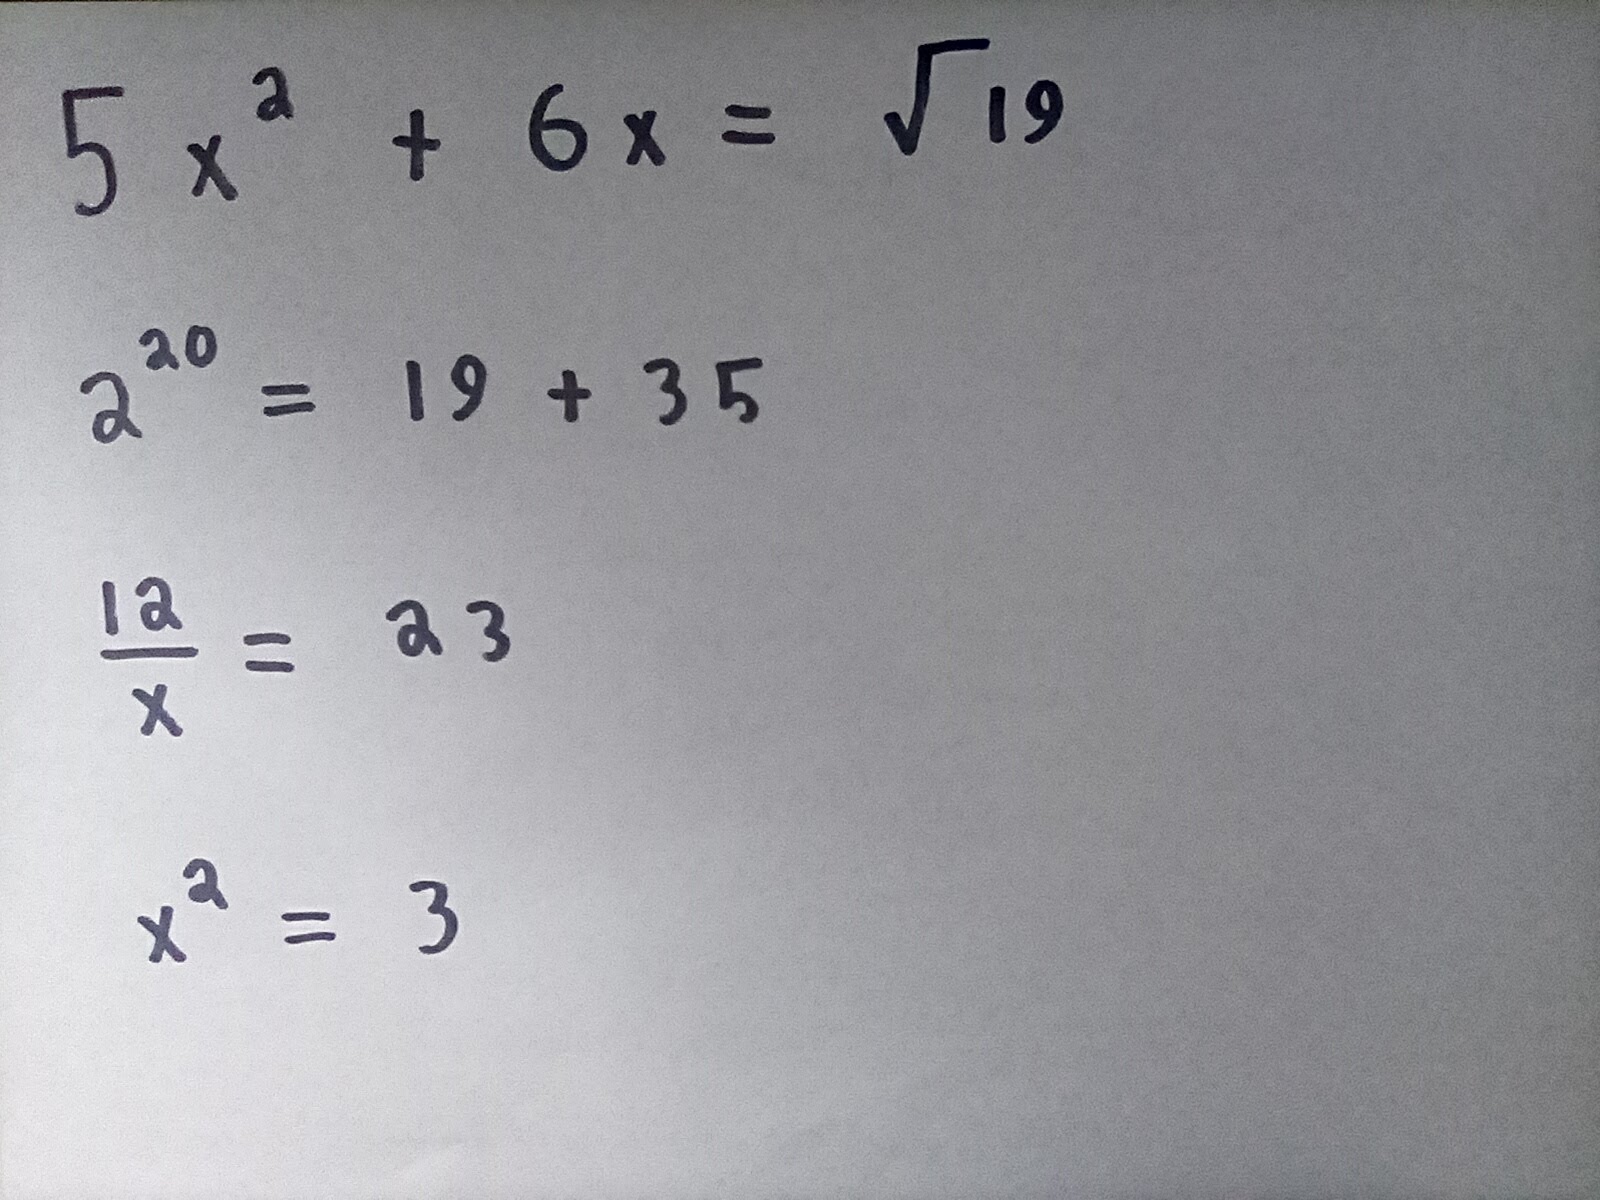 5x² + 6x = √19
2²⁰ = 19 + 35
12/x = 23
x² = 3